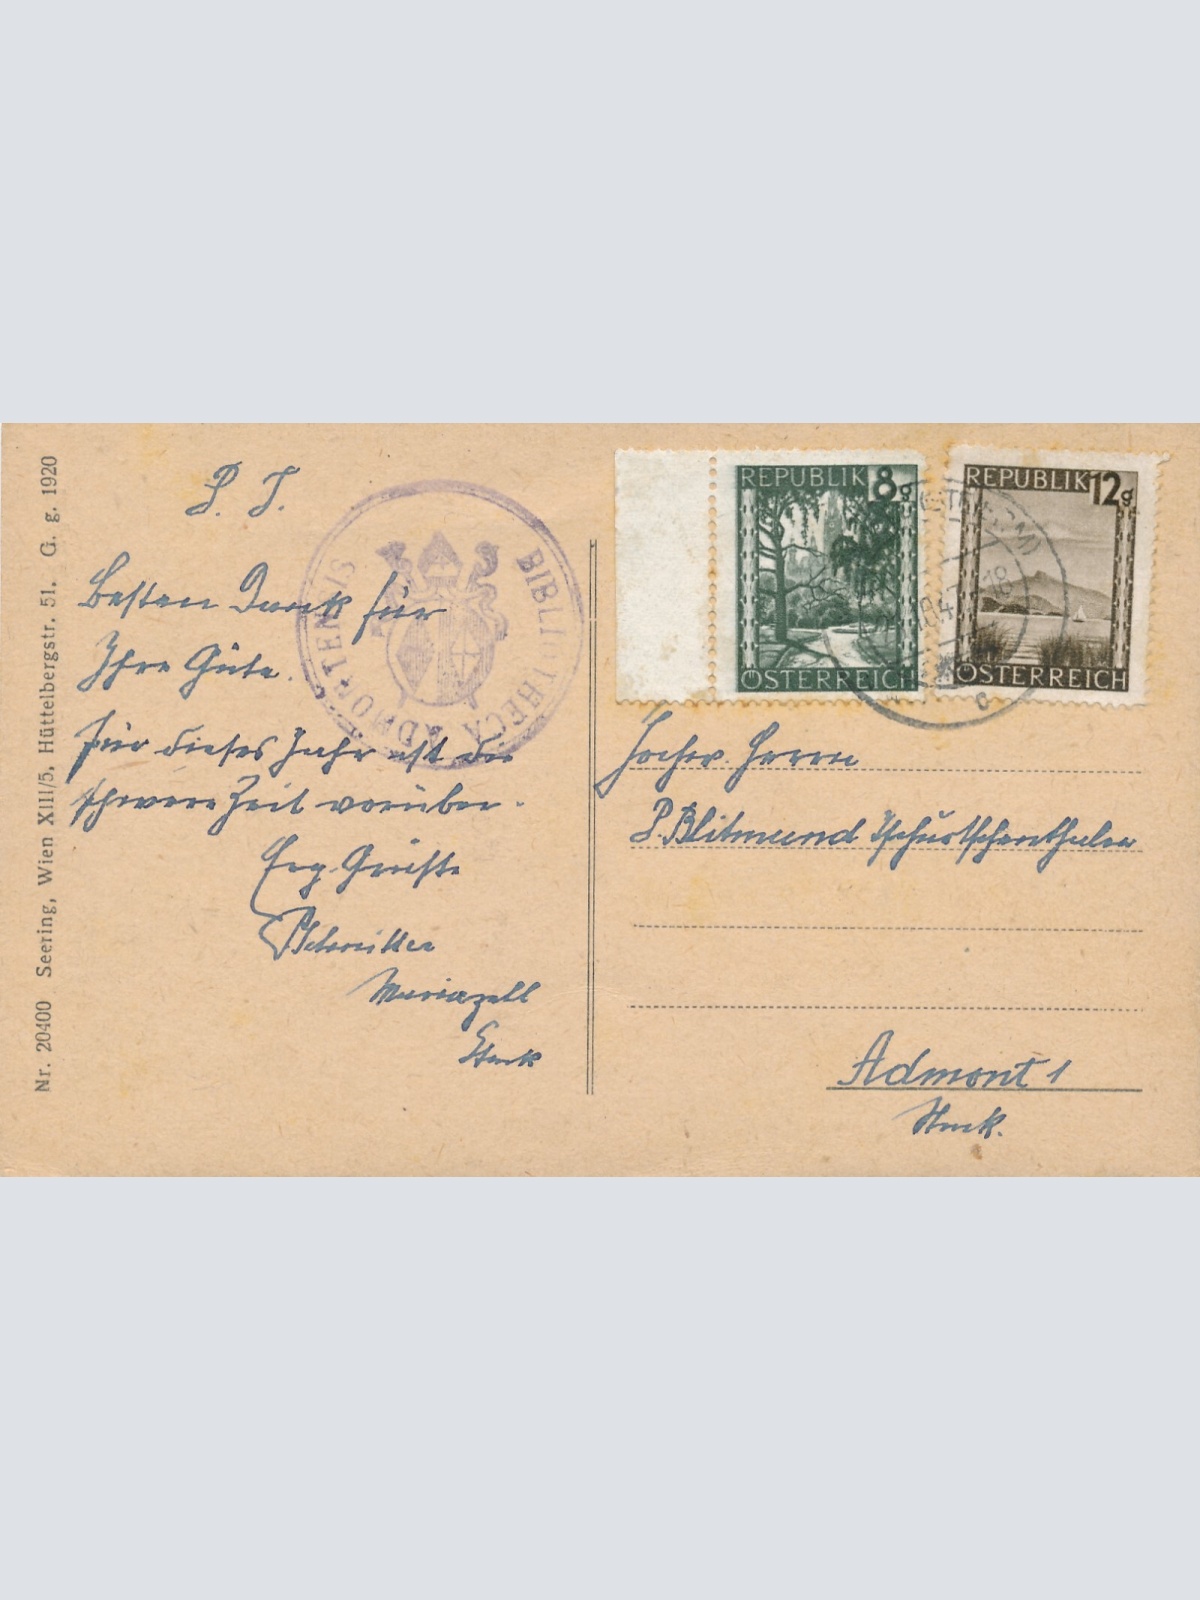 Nr. 20400 Seering, Wien XIII/5, Hüttelbergstr. 51. G. g. 1920
P. T.
Besten Dank für
Ihre Güte.
Für dieses Jahr ist die
schwere Zeit vorüber.
Erg. Grüße
Mariazell
Stmk
BIBLIOTHECA ADMONTENSIS
REPUBLIK 8g
ÖSTERREICH
REPUBLIK 12g
ÖSTERREICH
Hochw. Herrn
P. Blitmund Tschurtschenthaler
Admont 1
Stmk.